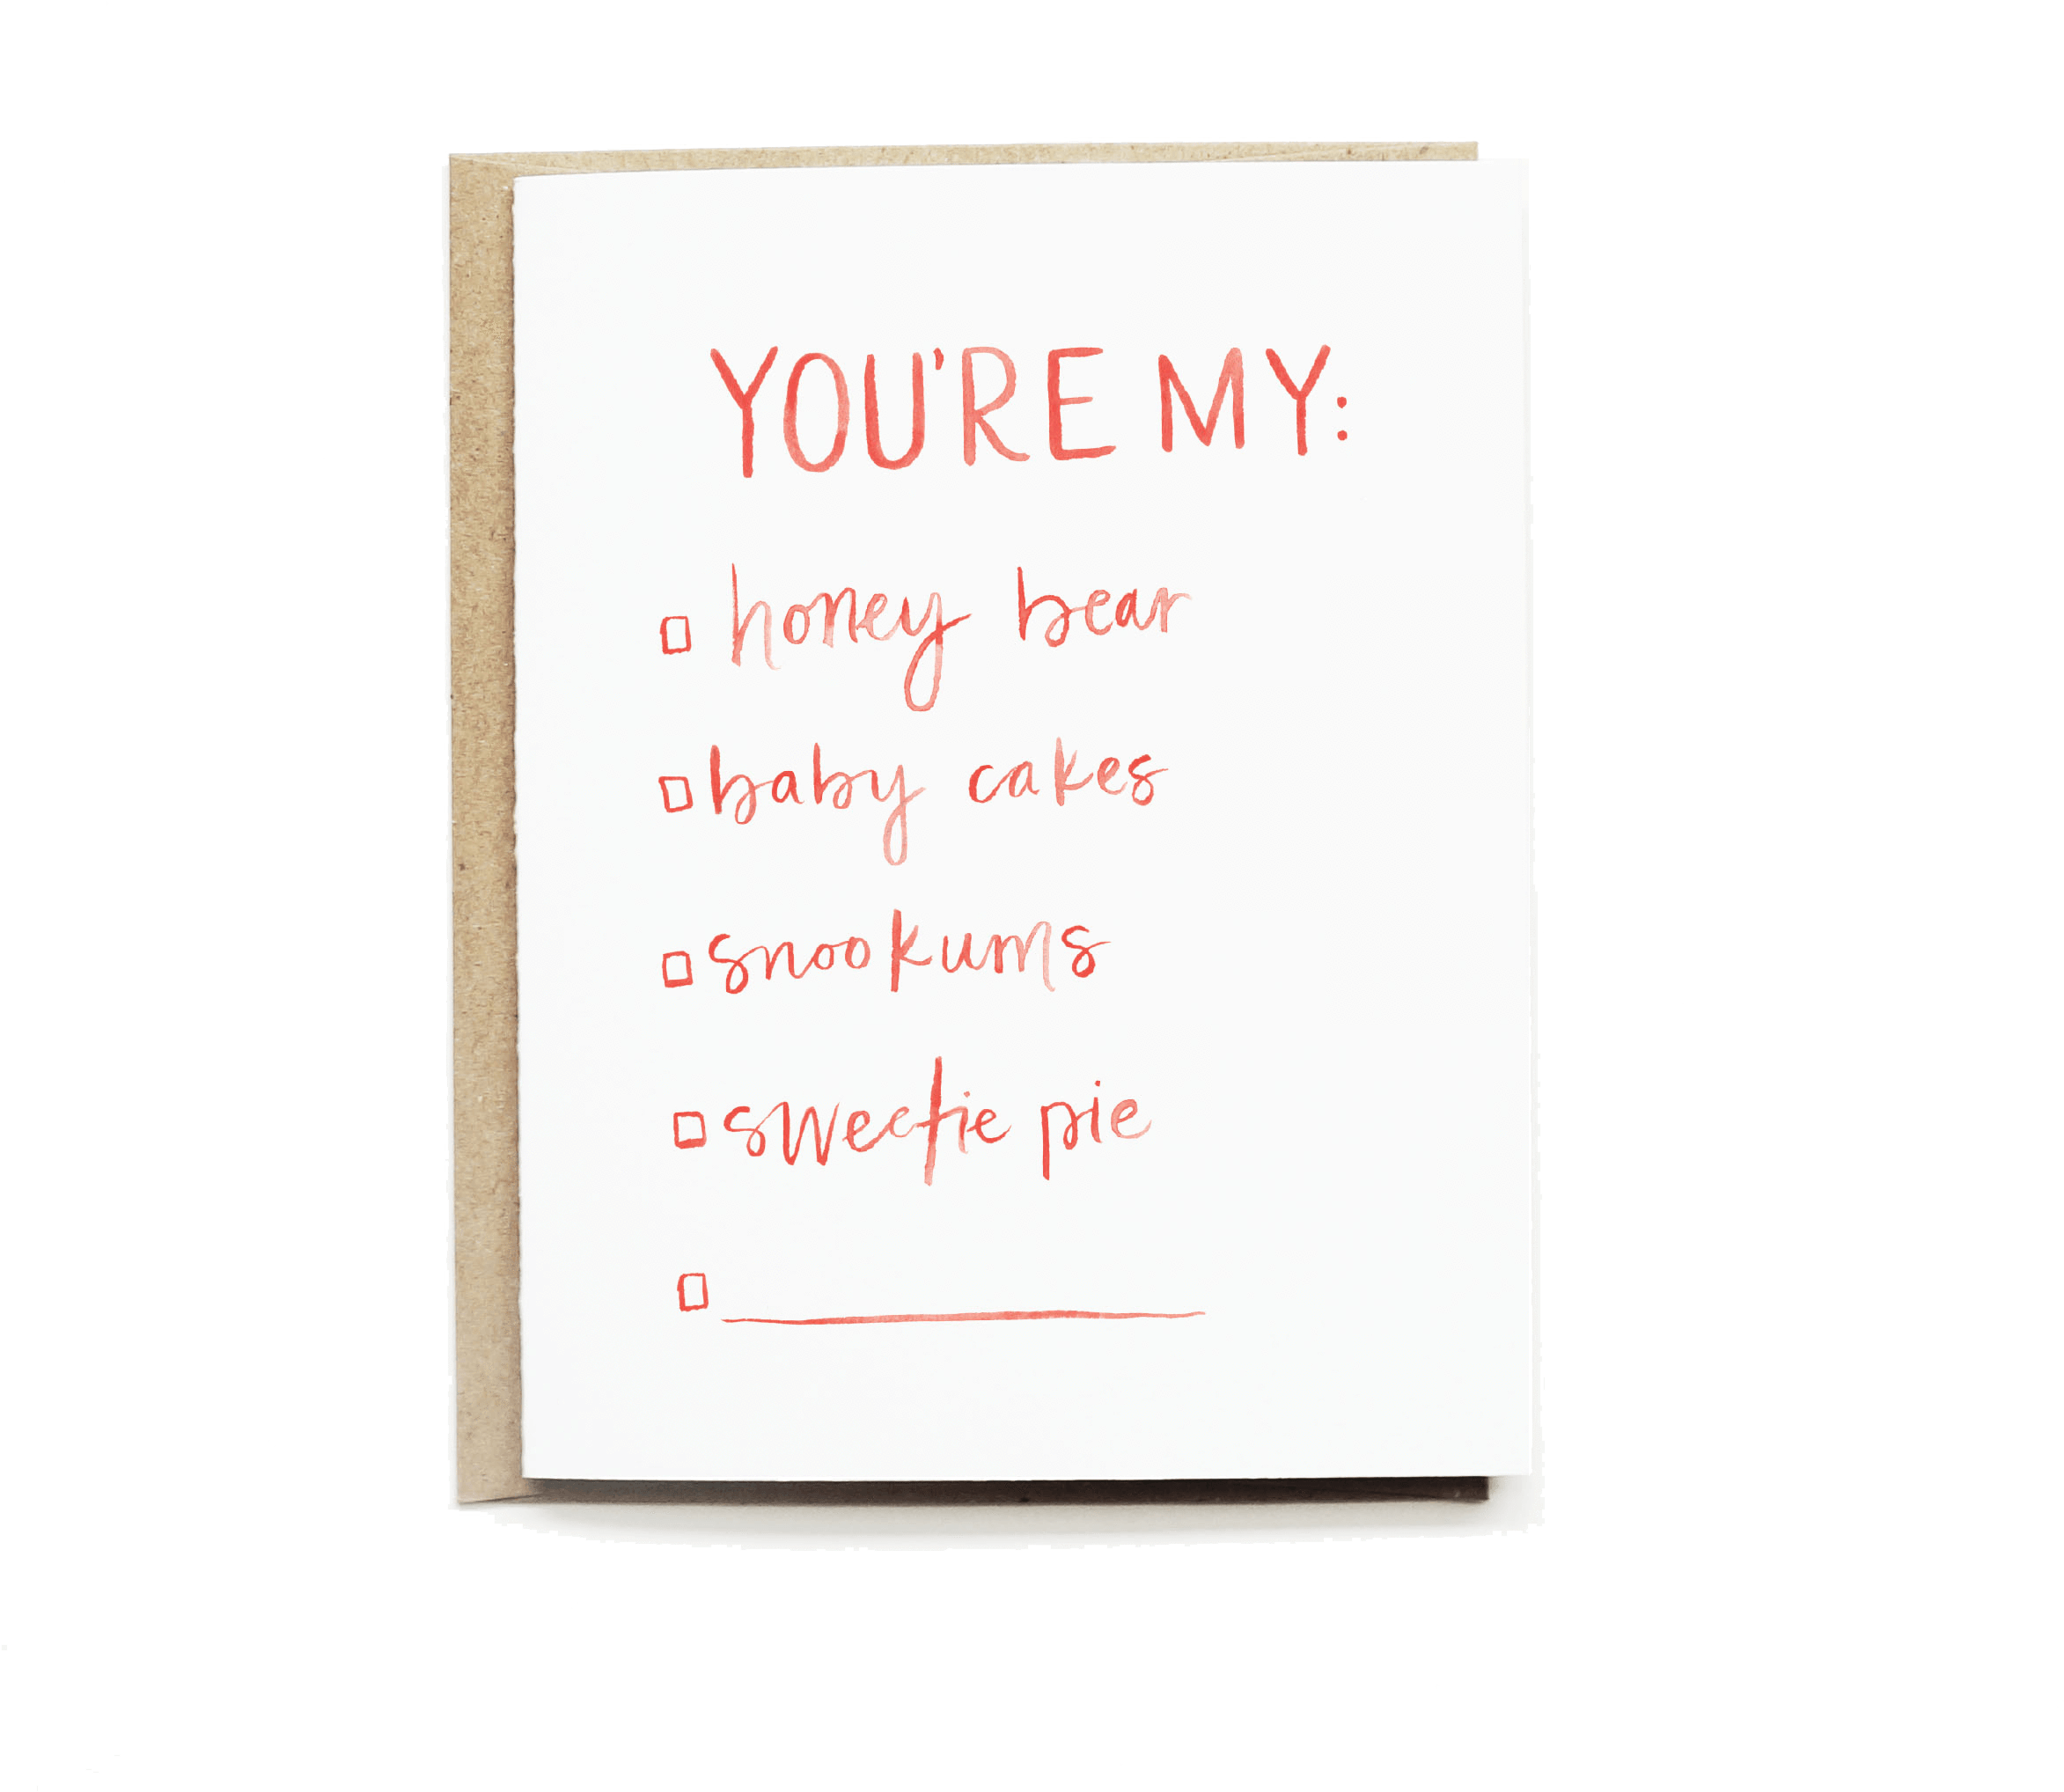 YOU'RE MY:
honey bear
baby cakes
snookums
sweetie pie